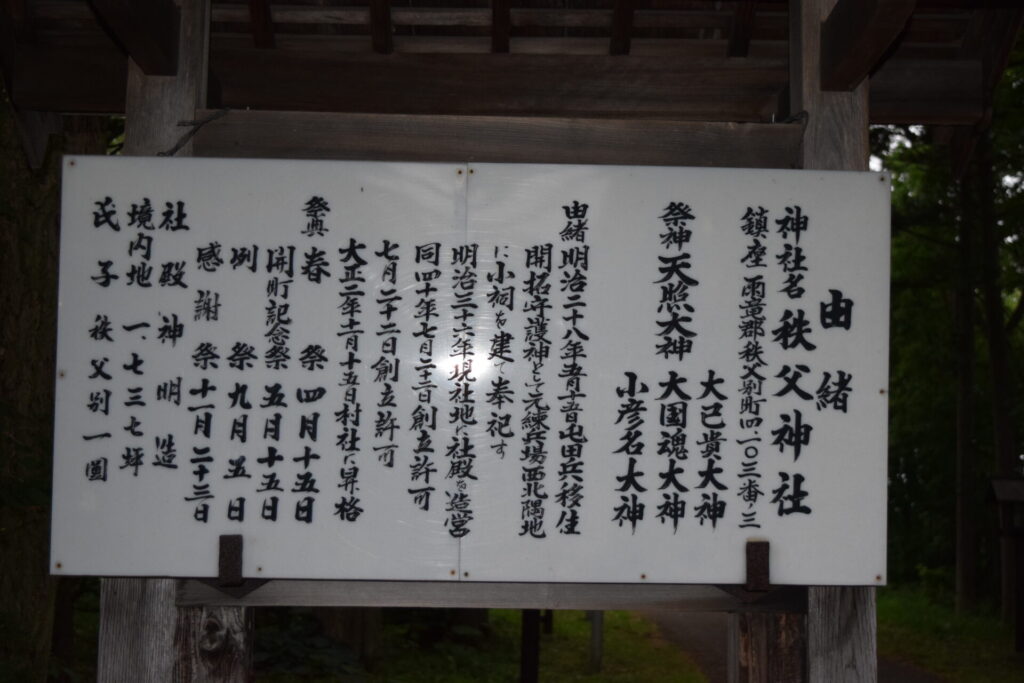 由緒
神社名秩父神社
鎮座 雨竜郡秩父別町四一〇三番ノ三
大己貴大神
祭神天照大神 大国魂大神
小彦名大神
由緒明治二十八年五月十五日屯田兵移住
開拓守護神として元練兵場西北隅地
に小祠を建て奉祀す
明治三十六年現社地に社殿を造営
同四十年七月二十二日創立許可
七月二十二日創立許可
大正二年十二月十五日村社に昇格
祭典 春祭 四月十五日
開町記念祭 五月十五日
例祭 九月五日
感謝祭 十一月二十三日
社殿 神明造
境内地 一、七三七坪
氏子 秩父別一円